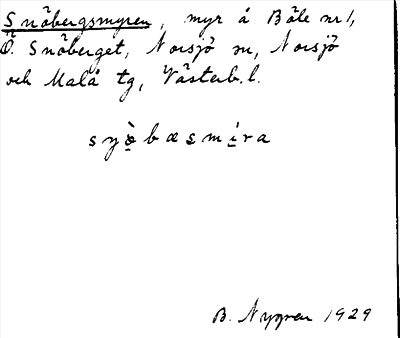 Snöbergsmyren, myr å Böle nr 1,
Ö. Snöberget, Norsjö sn, Norsjö
och Malå tg, Västerb. l.
syo̱̊bæsmi̱ra
B. Nygren 1929